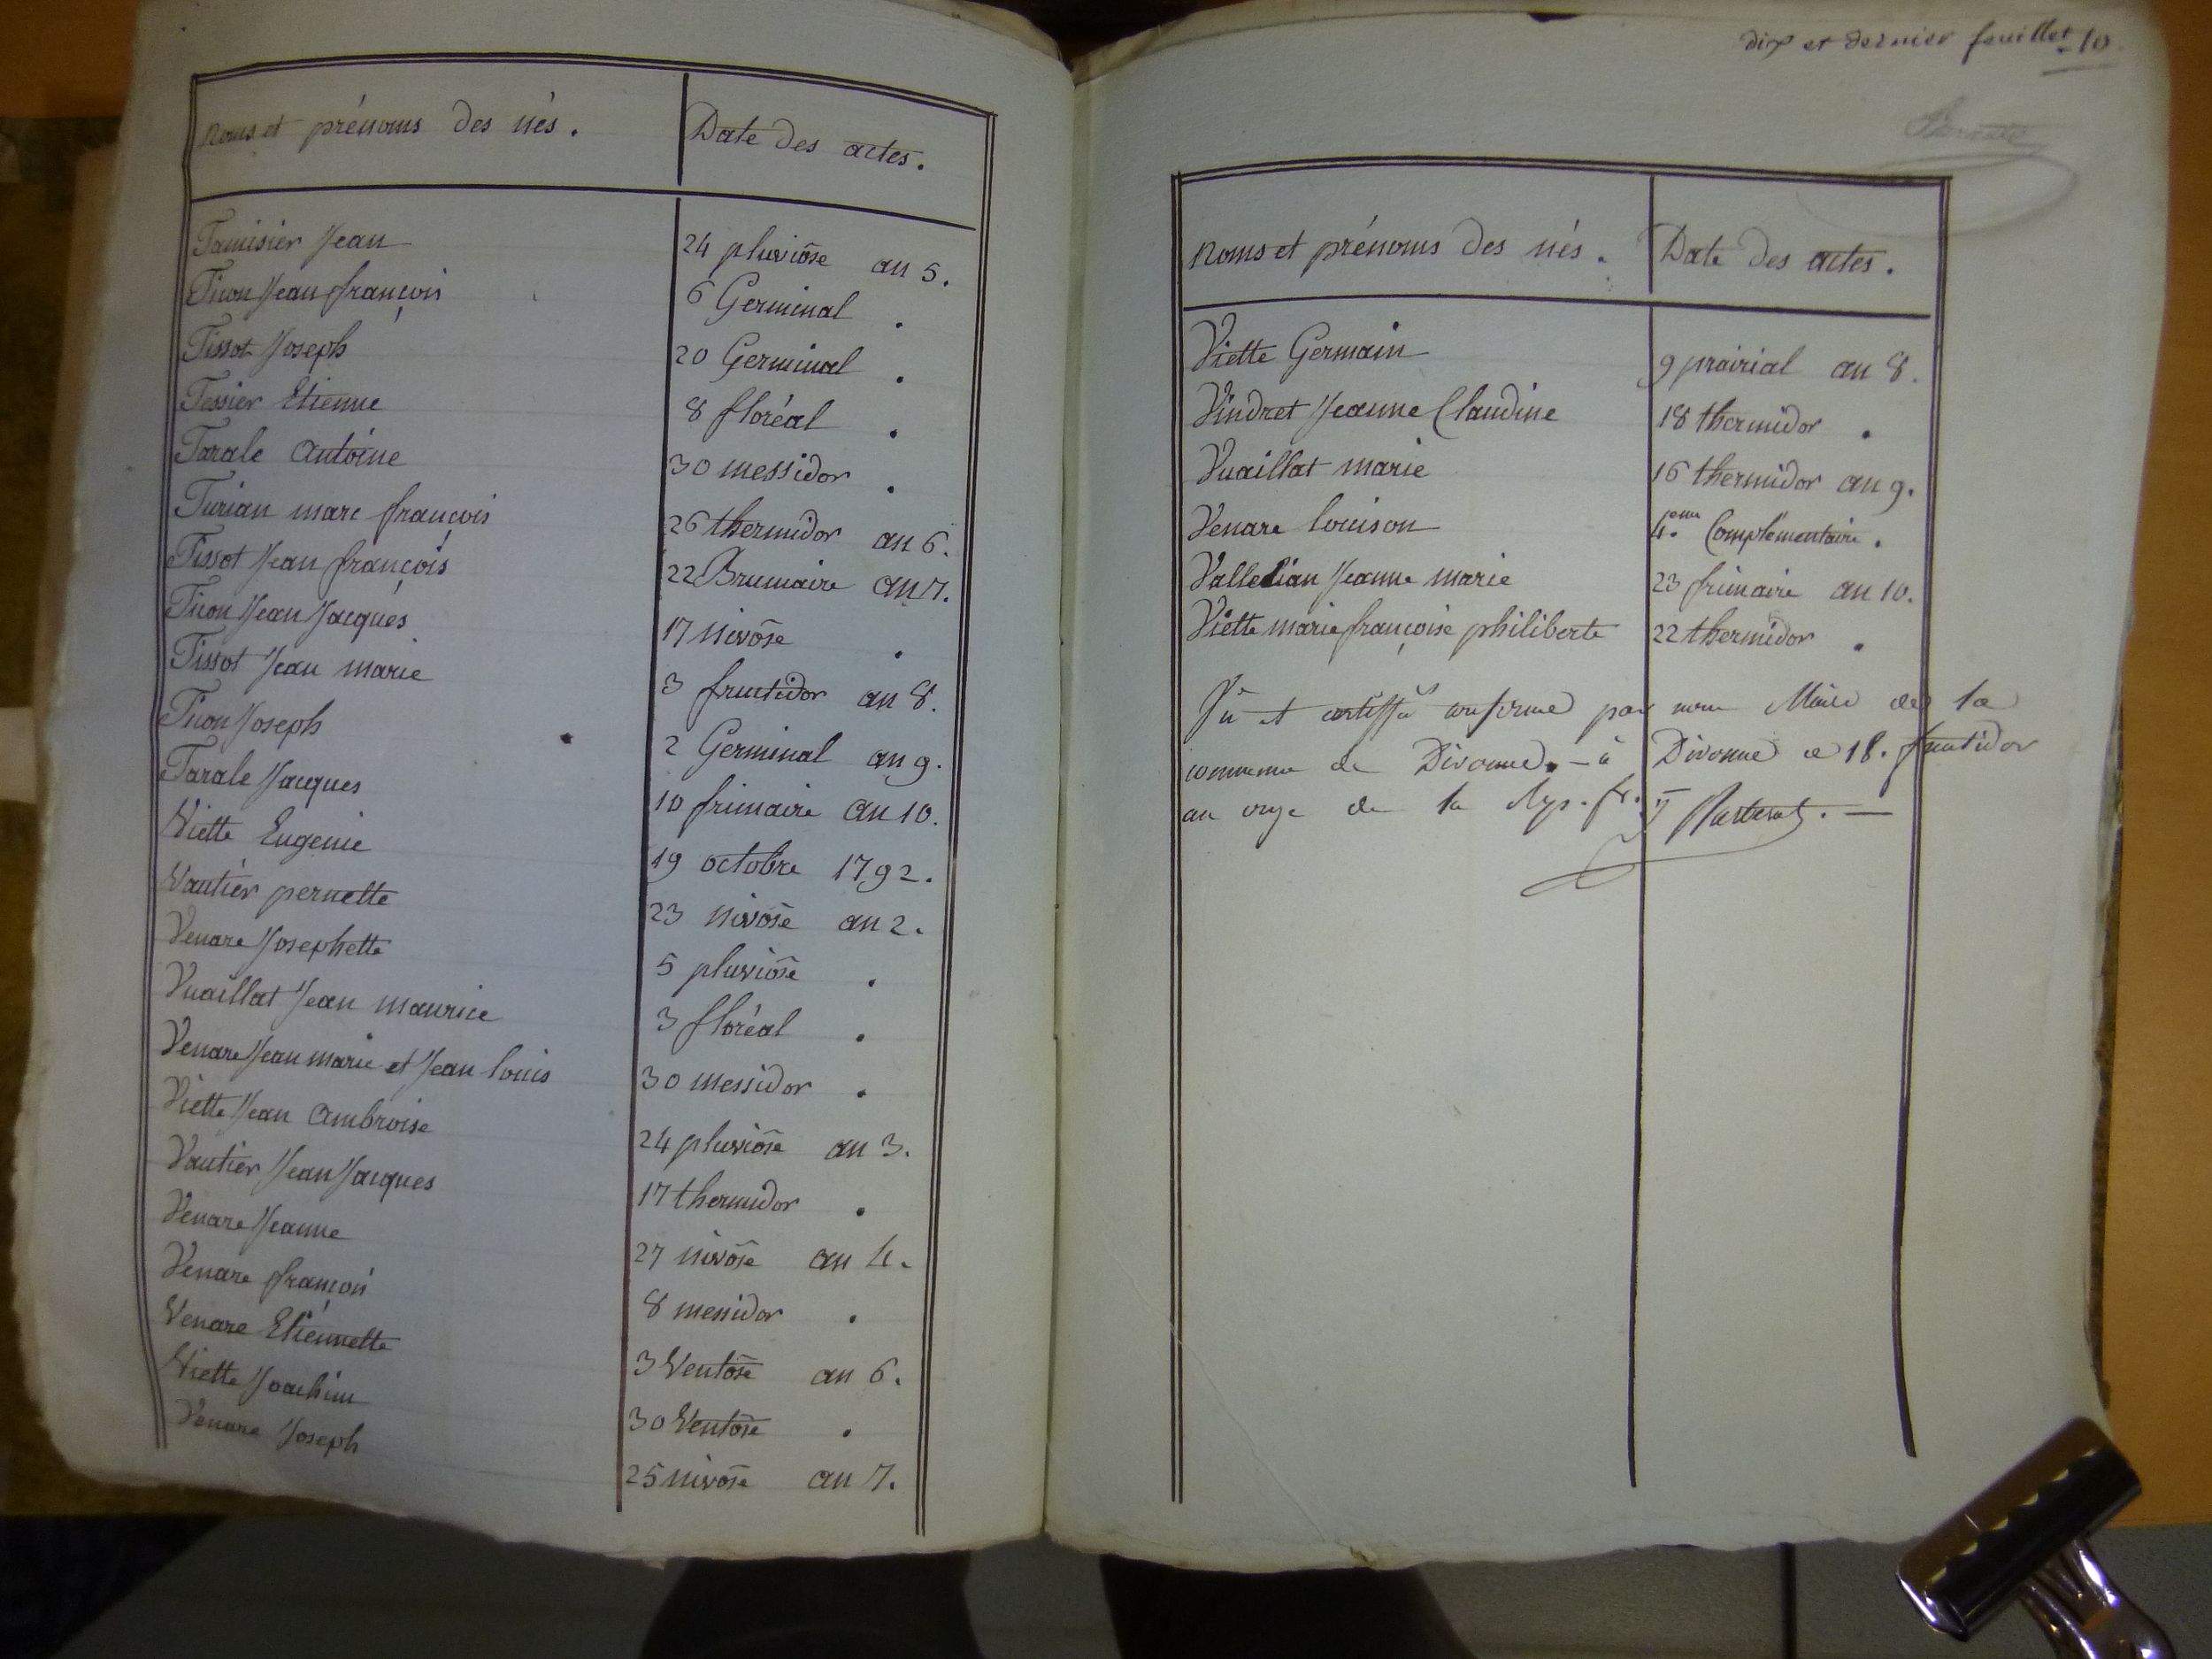 noms et prénoms des nés. Date des actes.
Tamisier Jean 24 pluviôse an 5.
Ticon Jean françois 6 Germinal .
Tissot Joseph 20 Germinal .
Tessier Etienne 8 floréal .
Tarale antoine 30 messidor .
Turian marc françois 26 thermidor an 6.
Tissot Jean françois 22 Brumaire an 7.
Ticon Jean Jacques 17 nivôse .
Tissot Jean marie 3 fructidor an 8.
Ticon Joseph 2 Germinal an 9.
Tarale Jacques 10 frimaire an 10.
Viette Eugenie 19 octobre 1792.
Vautier pernette 23 nivôse an 2.
Venare Josephette 5 pluviôse .
Vuaillat Jean maurice 3 floréal .
Venare Jean marie et Jean louis 30 messidor .
Viette Jean ambroise 24 pluviôse an 3.
Vautier Jean Jacques 17 thermidor .
Venare Jeanne 27 nivôse an 4.
Venare françois 8 messidor .
Venare Etiennette 3 Ventôse an 6.
Viette Joachim 30 Ventôse .
Venare Joseph 25 nivôse an 7.
dix et dernier feuillet. 10.
noms et prénoms des nés. Date des actes.
Viette Germain 9 prairial an 8.
Vindret Jeanne Claudine 18 thermidor .
Vuaillat marie 16 thermidor an 9.
Venare louison 4.eme Complémentaire .
Valledian Jeanne marie 23 frimaire an 10.
Viette marie françoise philiberte 22 thermidor .
Vu et certifié conforme par nous Maire de la
commune de Divonne. - à Divonne ce 18. fructidor
an onze de la Rep. fr.